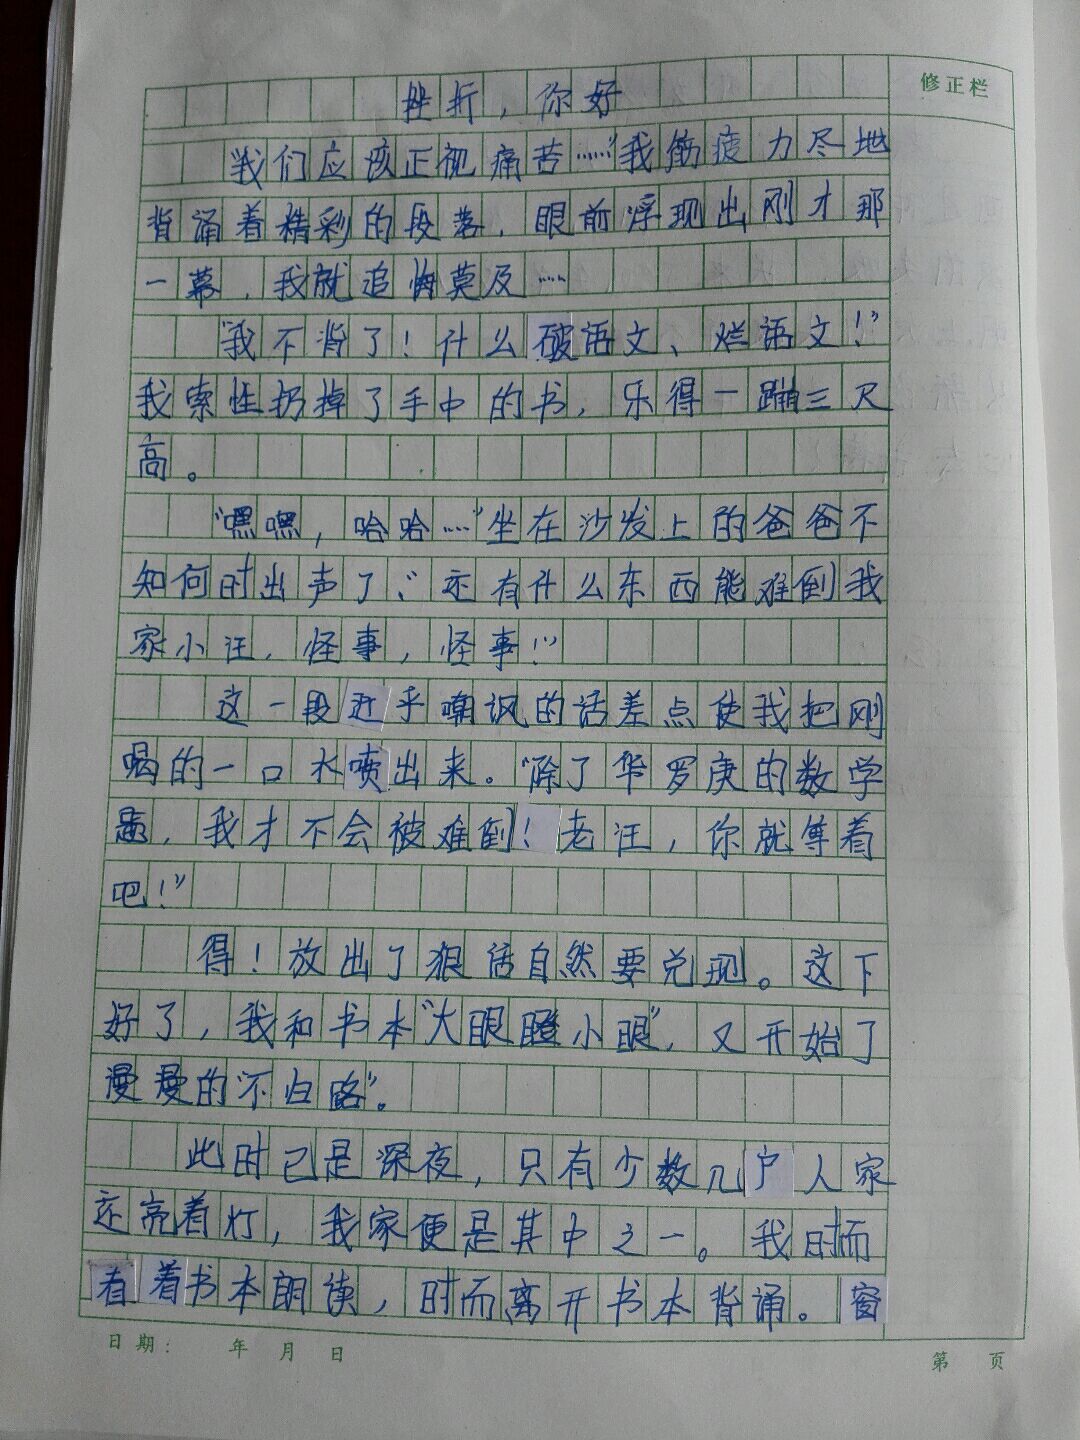 修正栏
挫折，你好
“我们应该正视痛苦……”我筋疲力尽地
背诵着精彩的段落，眼前浮现出刚才那
一幕，我就追悔莫及……
“我不背了！什么破语文、烂语文！”
我索性扔掉了手中的书，乐得一蹦三尺
高。
“嘿嘿，哈哈……”坐在沙发上的爸爸不
知何时出声了：“还有什么东西能难倒我
家小汪，怪事，怪事！”
这一段近乎嘲讽的话差点使我把刚
喝的一口水喷出来。“除了华罗庚的数学
题，我才不会被难倒！老汪，你就等着
吧！”
得！放出了狠话自然要兑现。这下
好了，我和书本“大眼瞪小眼”，又开始了
漫漫的“不归路”。
此时已是深夜，只有少数几户人家
还亮着灯，我家便是其中之一。我时而
看着书本朗读，时而离开书本背诵。窗
日期： 年 月 日
第 页